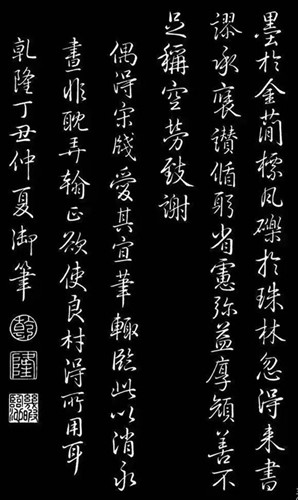 墨於金蕳標凤礫於珠林忽得来書
謬承褒讃循躬省慮弥益厚顔善不
足稱空劳致謝
偶得宋牋愛其宜筆輒臨此以消永
晝非耽弄翰正欲使良材得所用耳
乾隆丁丑仲夏御筆
乾
隆